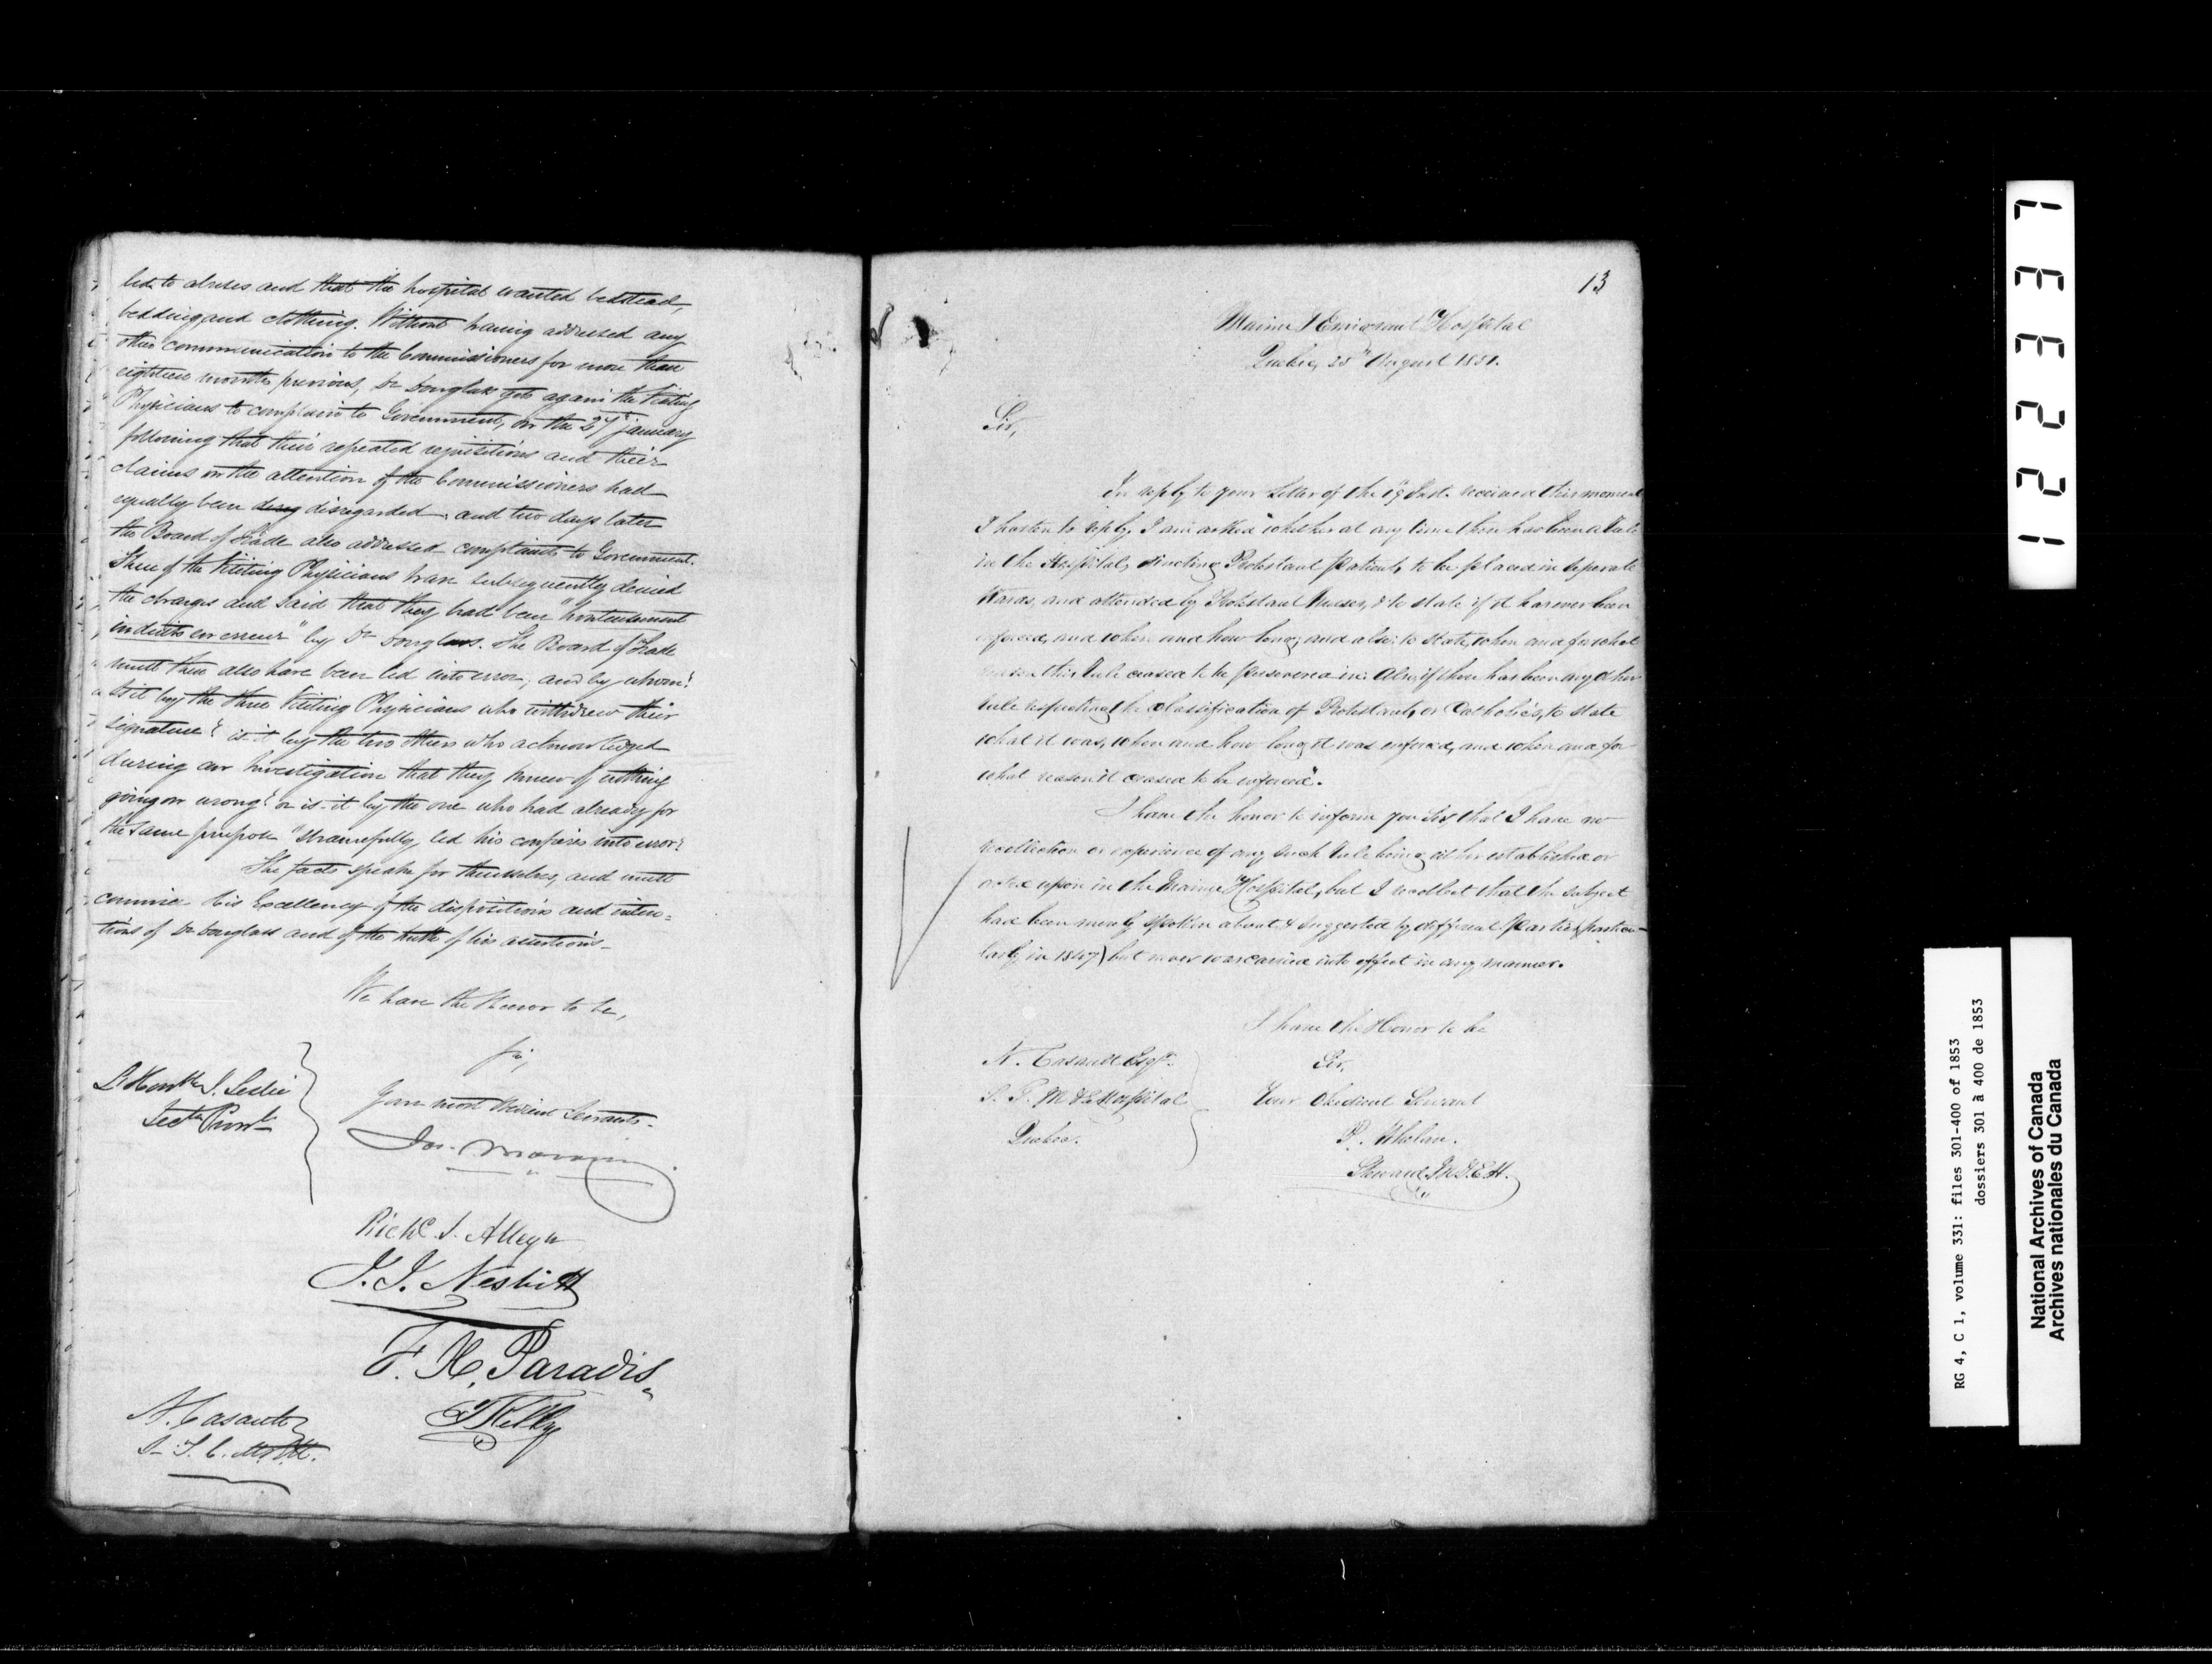 led to abuses and that the hospital wanted bedstead,
bedding and clothing. Without having addressed any
other communication to the Commissioners for more than
eighteen months previous, Dr Douglas gets again the Visiting
Physicians to complain to Government, on the 27th january
following that their repeated requisitions and their
claims on the attention of the Commissioners had
equally been disreg disregarded. and two days later
the Board of Trade also addressed complaints to Government.
Three of the Visiting Physicians have subsequently denied
the charges and said that they had been "honteusement
induits en erreur" by Dr Douglass. The Board of Trade
must then also have been led into error; and by whom?
is it by the three Visiting Physicians who withdrew their
signature? is it by the two others who acknowledged
during an investigation that they knew of nothing
going on wrong? or is it by the one who had already for
the same purpose "shamefully led his confreres into error?
The facts speak for themselves, and must
convince His Excellency of the dispositions and inten=
tions of Dr Douglass and of the truth of his assertions_
We have the Honor to be,
Sir,
Your most obedient Servants.
L'Honble J. Leslie
Secty Provl
Jos. Morrin
Richd. I. Alleyn
J. J. Nesbitt
F. X. Paradis
N. Casault
S. T. C. M & E H.
13
Marine & Emigrant Hospital
Quebec, 25th August 1851.
Sir,
In reply to your Letter of the 19 Inst. received this moment
I hasten to reply. I am asked "whether at any time there has been a Rule
in the Hospital, directing Protestant Patients, to be placed in separate
Wards, and attended by Protestant Nurses, & to state if it has ever been
enforced, and when and how long; and also: to state, when and for what
reason this Rule ceased to be persevered in. Also, if there has been any other
Rule respecting the classification of Protestants, or Catholics, to state
what it was, when and how long it was enforced, and when and for
what reason it ceased to be enforced".
I have the honor to inform you Sir that I have no
recollection or experience of any such Rule being either established or
acted upon in the Marine Hospital, but I recollect that the subject
had been merely spoken about & suggested by different Parties (particu=
larly in 1847) but never was carried into effect in any manner.
I have the Honor to be
Sir,
Your Obedient Servant
P. Whelan.
Steward M. & E. H.
N. Casault Esqr.
S. T. M & E Hospital
Quebec.
12237
RG 4, C 1, volume 331: files 301-400 of 1853
dossiers 301 à 400 de 1853
National Archives of Canada
Archives nationales du Canada